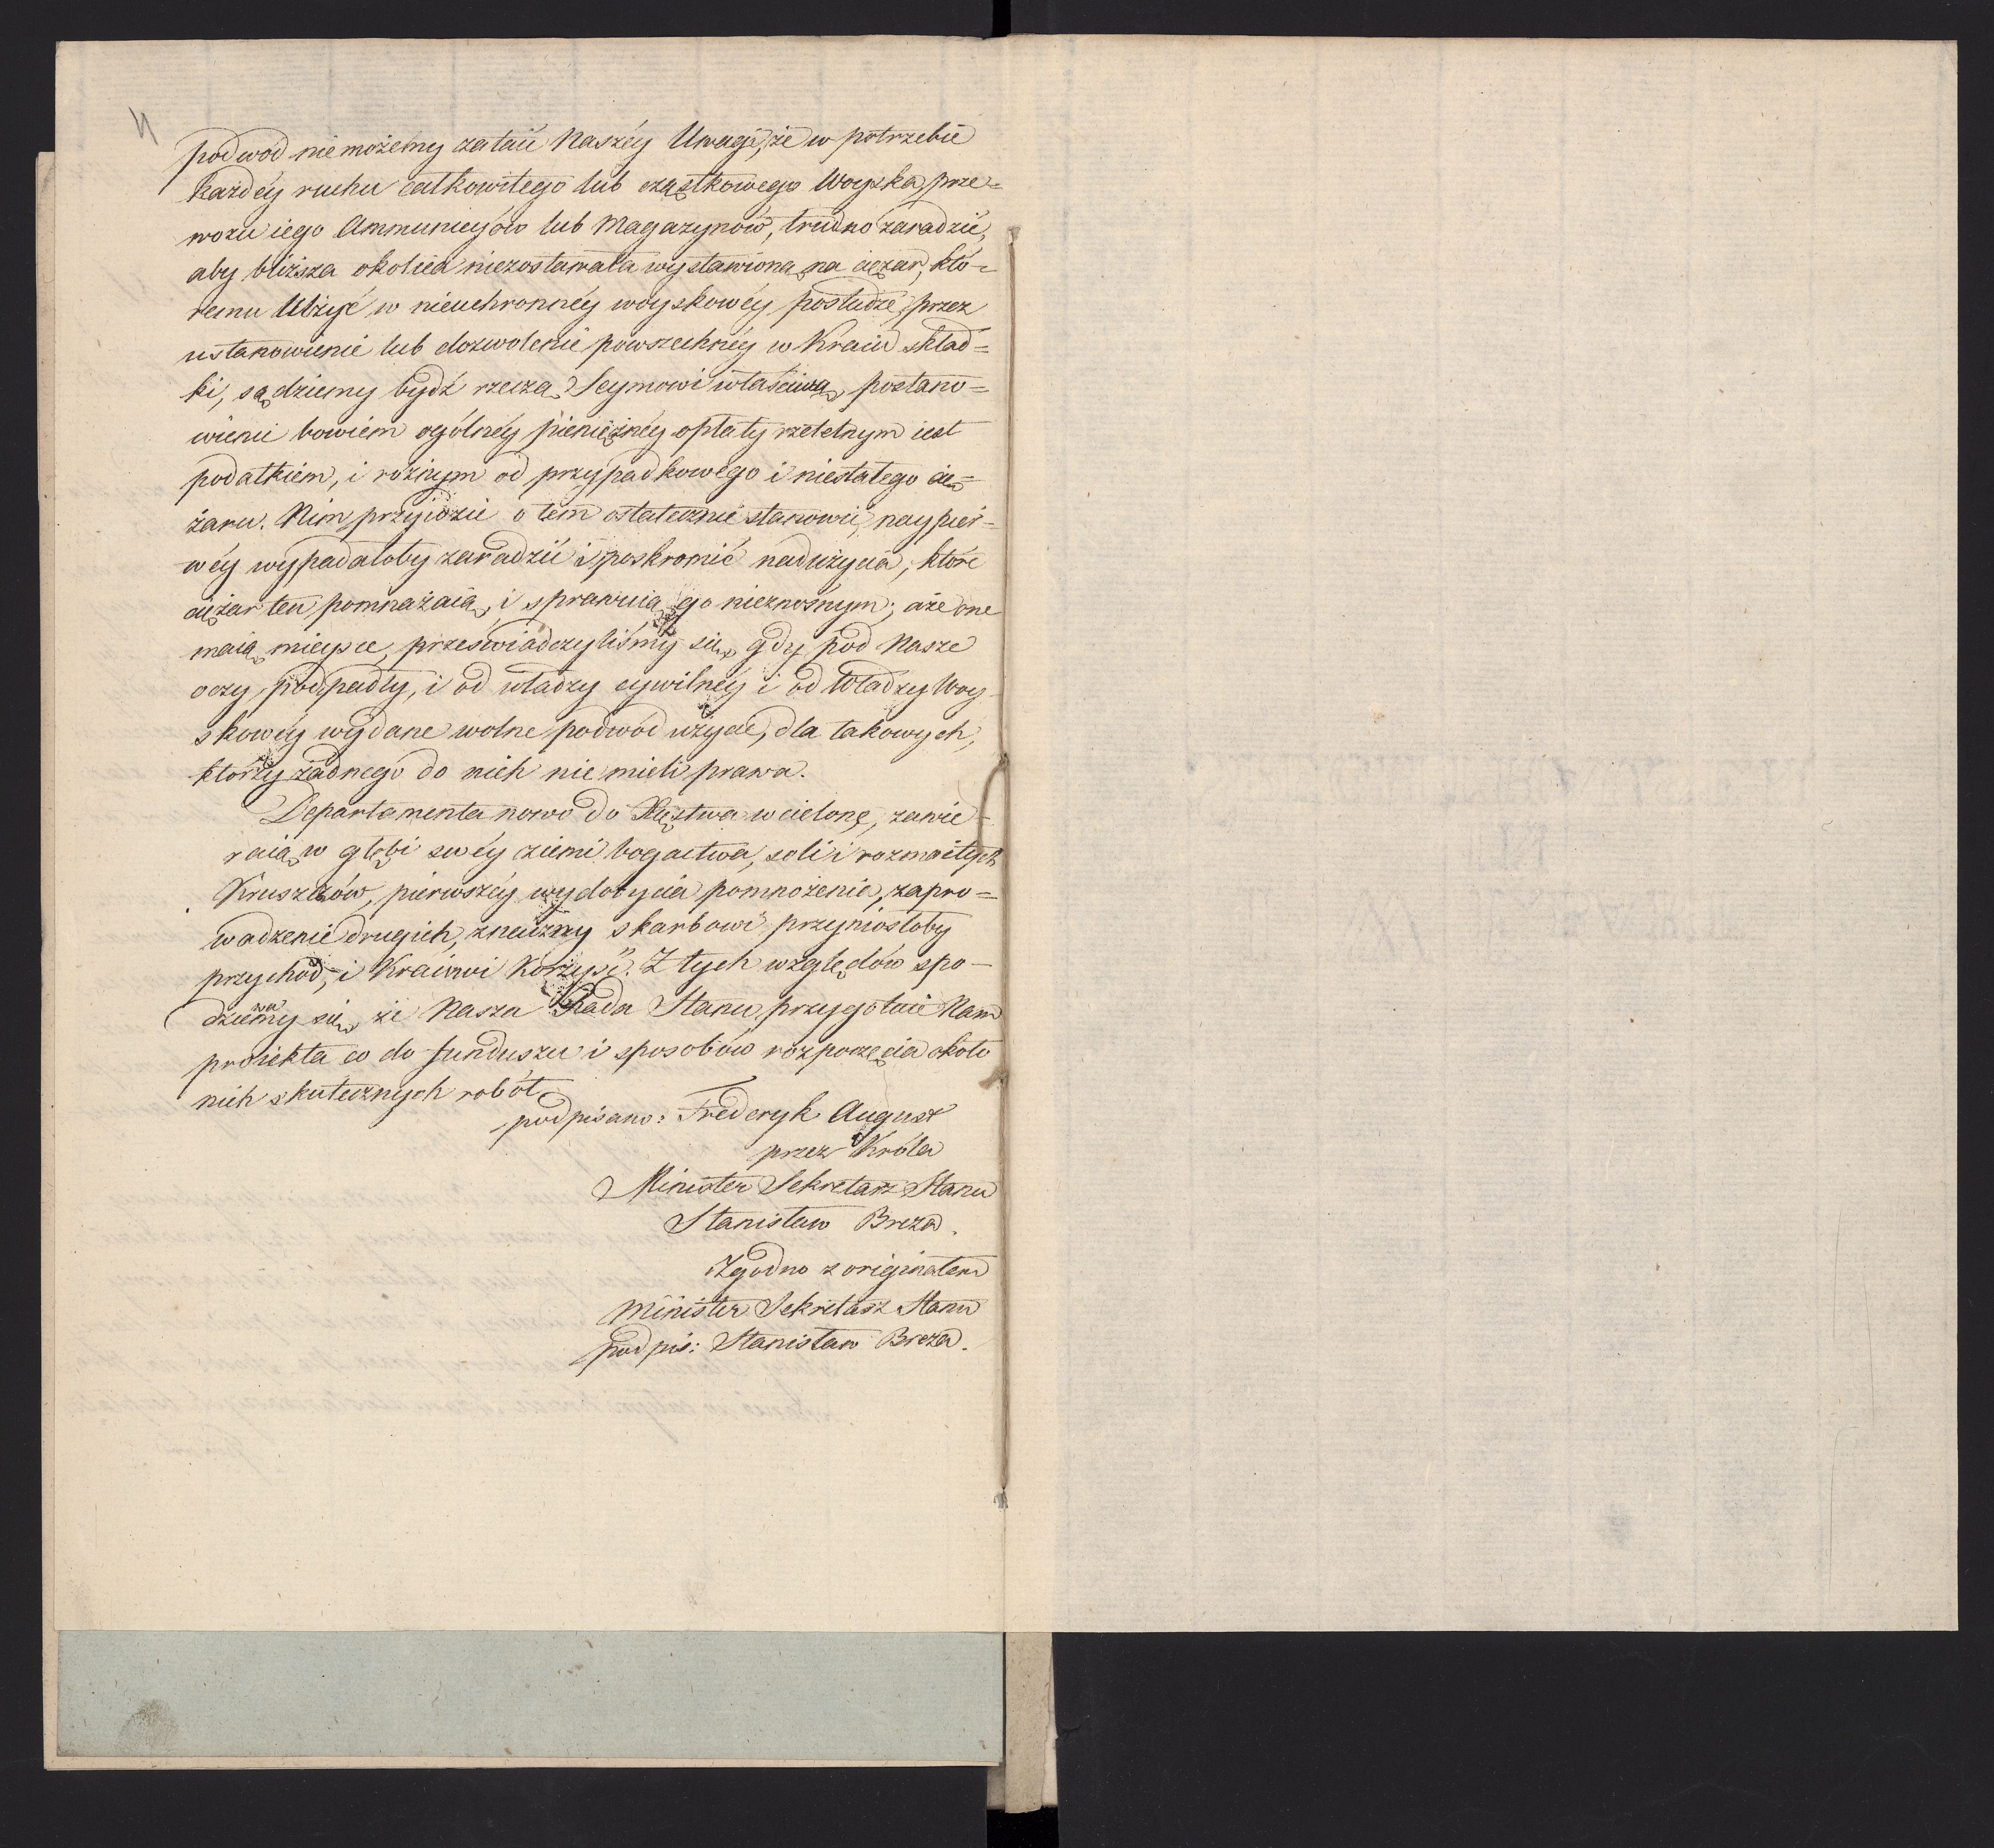 podwod niemożemy zataić Naszéy Uwagi, że w potrzebie
każdéy ruchu całkowitego lub cząstkowego Woyska, prze=
wozu iego Ammunicyów lub Magazynów, trudno zaradzić,
aby bliższa okolica niezostawała wystawioną na ciężar, któ=
remu Ulżyć w nieuchronnéy woyskowéy posłudze przez
ustanowienie lub dozwolenie powszechnéy w Kraiu skład=
ki, sądziemy bydź rzeczą Seymowi właściwą, postano=
wienie bowiem ogólnéy pieniężnéy opłaty rzetelnym iest
podatkiem, i rożnym od przypadkowego i niestałego cię=
żaru. Nim przyidzie o tem ostatecznie stanowić, naypier=
wéy wypadałoby zaradzić i poskromić nadużycia, które
ciężar ten pomnażaią, i sprawuią go nieznośnym; aże one
maią mieysce, przeświadczyliśmy się, gdy pod Nasze
oczy podpadły, i od władzy cywilnéy i od Władzy Woy
skowéy wydane wolne podwód użycie, dla takowych,
którzy żadnego do nich nie mieli prawa.
Departamenta nowo do Xięstwa wcielone, zawie=
raią w głębi swéy ziemi bogactwa, soli i rozmaitych
Kruszców, pierwszéy wydobycia pomnożenie, zapro=
wadzenie drugich, znaczny skarbowi przyniosłoby
przychód, i Kraiowi Korzyść. Z tych względów spo=
dziewamy się, że Nasza Rada Stanu przygotuie Nam
proiekta co do funduszu i sposobów rozpoczęcia około
nich skutecznych robót.
podpisano: Frederyk August
przez Króla
Minister Sekretarz Stanu
Stanisław Breza.
Zgodno z originałem
Minister Sekretarz Stanu
podpis: Stanisław Breza.